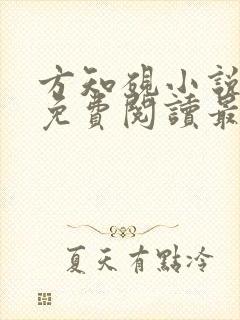 方知硯小說
免費閱讀最
夏天有點冷